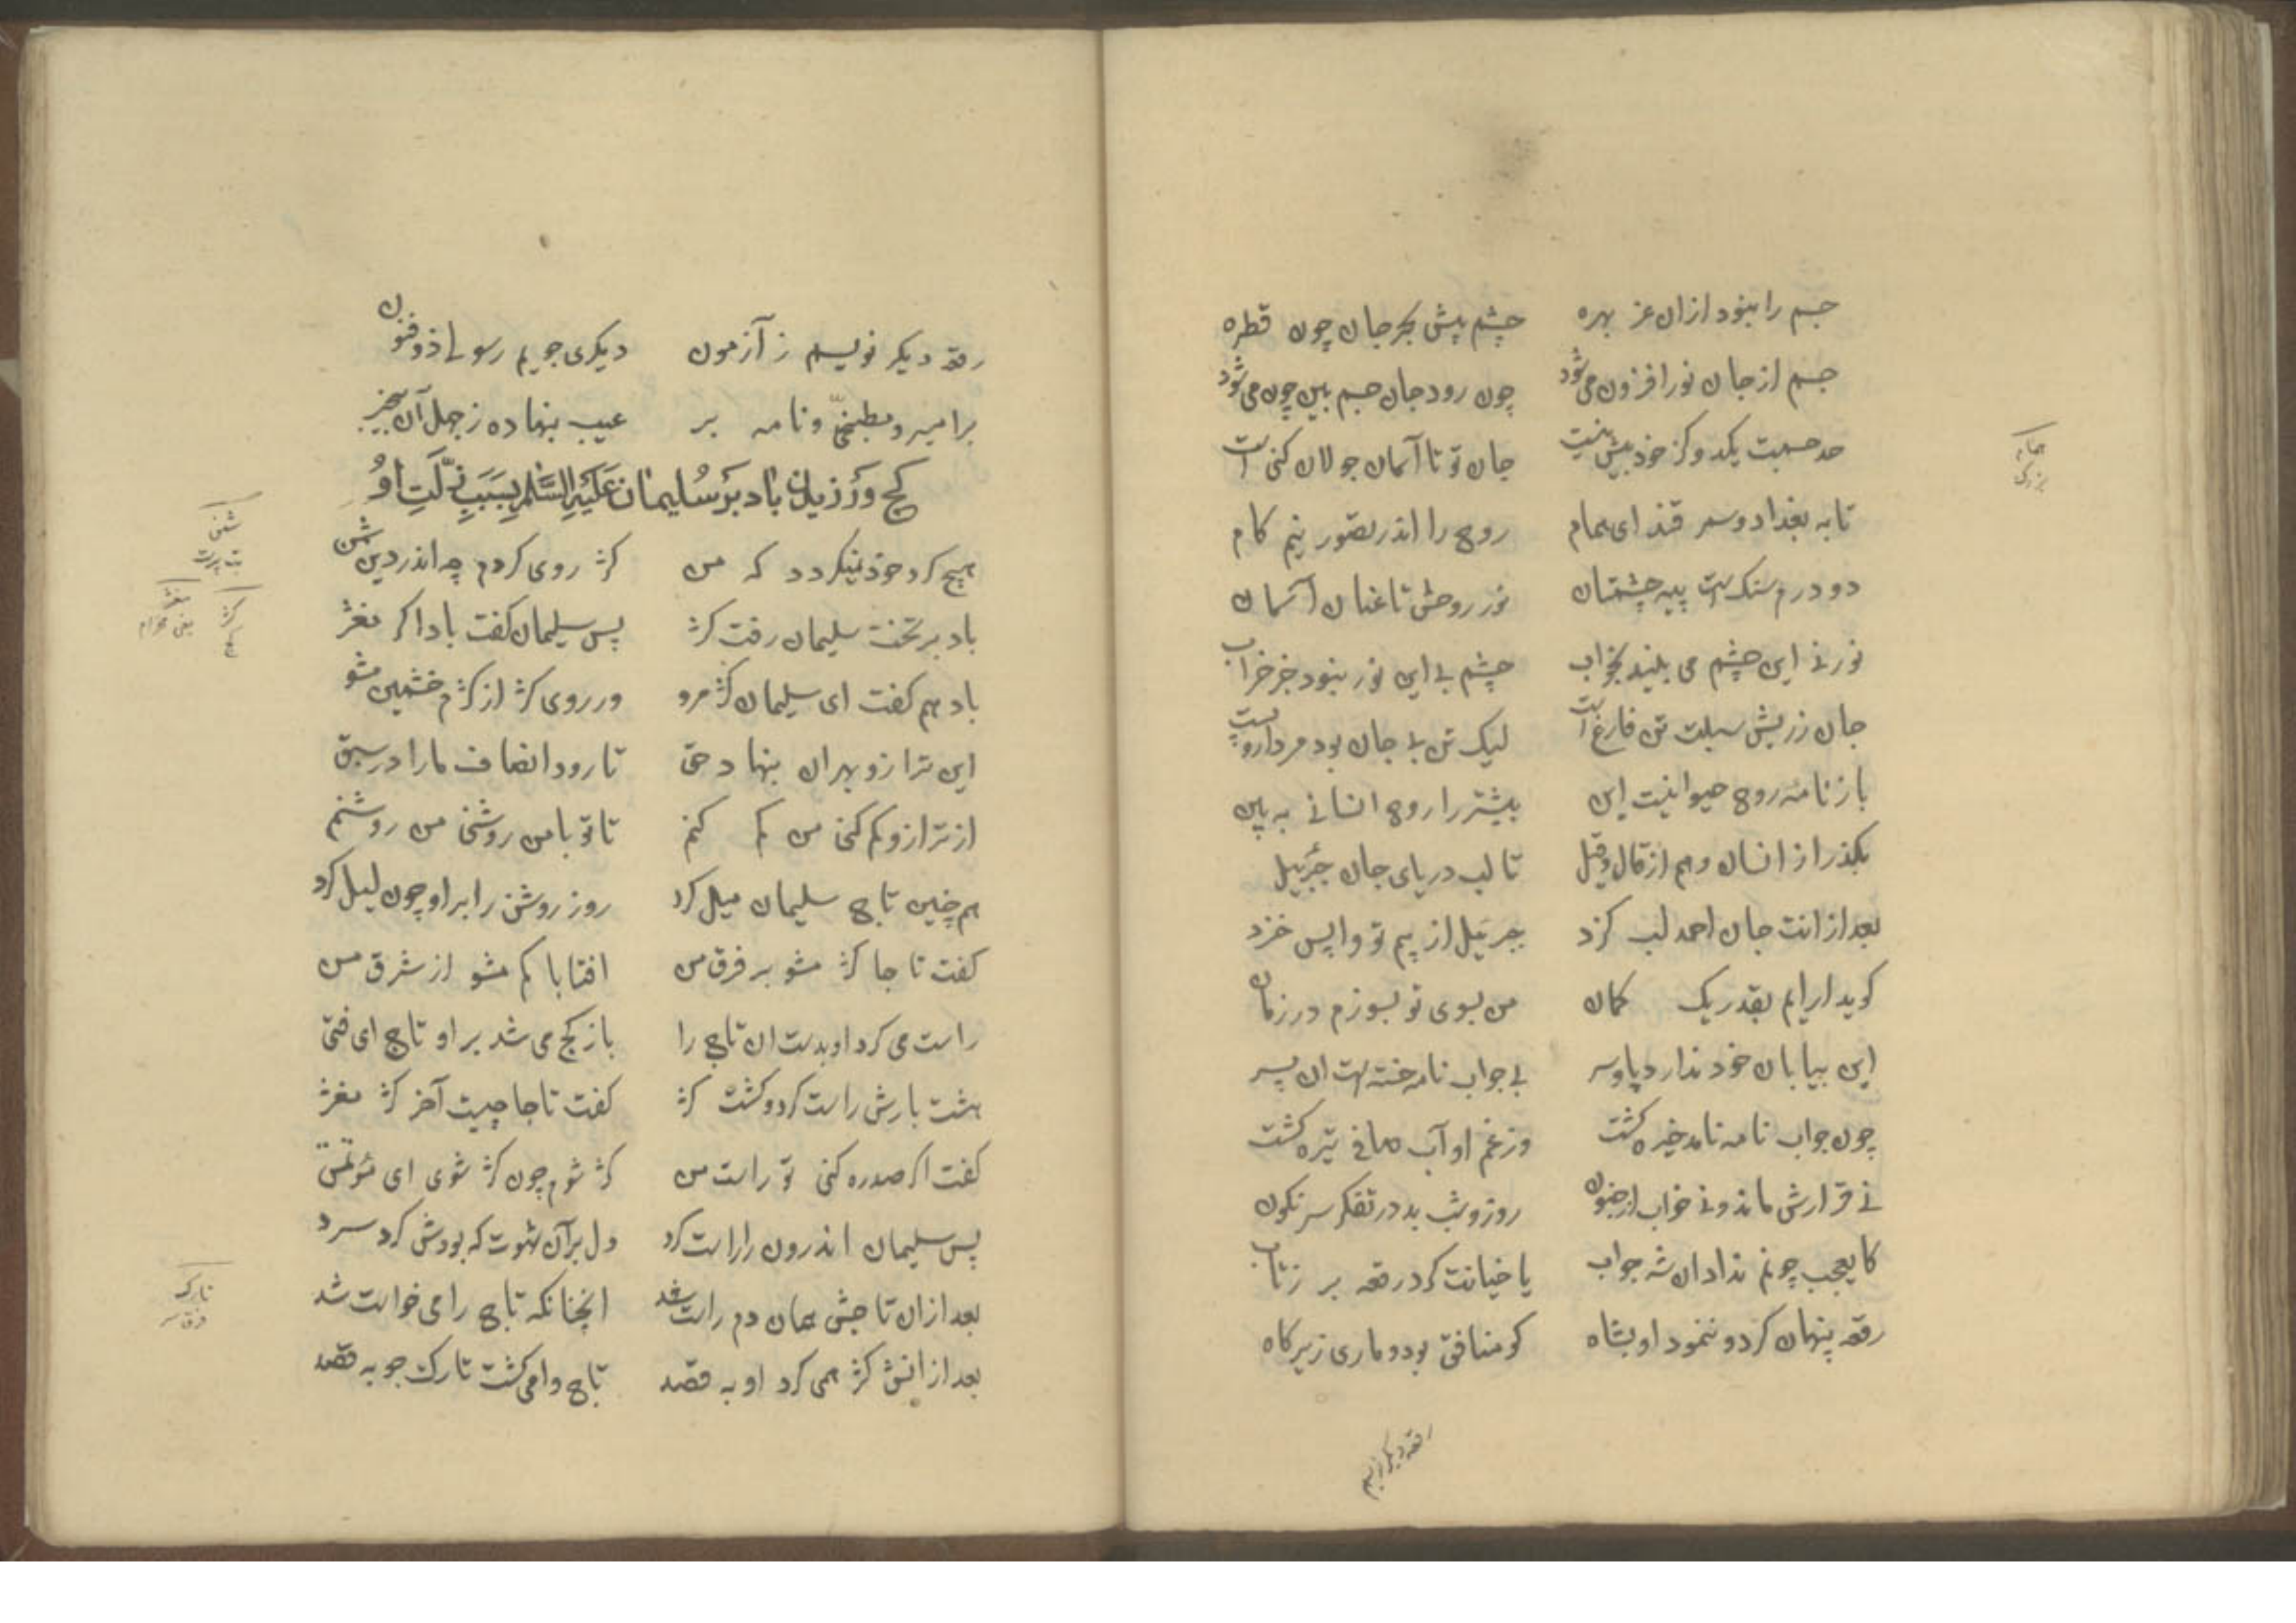 جسم را نبود ازان عز بهره چشم پیش بحر جان چون قطره
جسم از جان نور افزون می‌شود چون رود جان جسم بین چون می‌شود
حد جسمت یکدو گز خود بیش نیست جان تو تا آسمان جولان کنی است
تا به بغداد و سمر قند ای همام روح را اندر تصور نیم کام
دو درم سنک است پیه چشمتان نور روحش تا عنان آسمان
نور نی این چشم می بیند بخواب چشم بی این نور نبود جز خراب
جان ز ریش سبلت تن فارغ است لیک تن بی جان بود مردار و پست
باز نامه روح حیوانیت این بیشتر را روح انسانی به بین
بکذر از انسان و هم از قال و قیل تا لب دریای جان جبرئیل
بعد از انت جان احمد لب کزد جبرئیل از بیم تو واپس خزد
کوید ار ایم بقدر یک کمان من بسوی تو بسوزم در زمان
این بیابان خود ندارد پا و سر بی جواب نامه خسته است ان پسر
چون جواب نامه نامد خیره کشت وز غم او آب صافی تیره کشت
نی قرارش ماند و نی خواب از جنون روز و شب بد در تفکر سرنکون
کای عجب چونم نداد ان شه جواب یا خیانت کرد رقعه بر ز تاب
رقعه پنهان کرد و ننمود او بشاه کو منافق بود و ماری زیر کاه
رقعه دیکر نویسم
همام
بزرک
رقعه دیکر نویسم ز آزمون دیکری جویم رسولی ذو فنون
بر امیر و مطبخی و نامه بر عیب بنهاده ز جهل آن بیخبر
کج وزیدن باد بر سلیمان علیه السلم بسبب زلت او
هیچ کرد خود نمیکردد که من کژ روی کردم چو اندر دین شمن
باد بر تخت سلیمان رفت کژ پس سلیمان کفت بادا کژ مغژ
باد هم کفت ای سلیمان کژ مرو ور روی کژ از کژم خشمین مشو
این ترازو بهر ان بنهاد حق تا رود انصاف ما را در سبق
از ترازو کم کنی من کم کنم تا تو با من روشنی من روشنم
هم چنین تاج سلیمان میل کرد روز روشن را برا و چون لیل کرد
کفت تاجا کژ مشو بر فرق من افتابا کم مشو از شرق من
راست می کرد او بدست ان تاج را باز کج می شد بر او تاج ای فتی
هشت بارش راست کرد و کشت کژ کفت تاجا چیست آخر کژ مغژ
کفت اکر صد ره کنی تو راست من کژ شوم چون کژ شوی ای مؤتمن
پس سلیمان اندرون را راست کرد دل بر آن شهوت که بودش کرد سرد
بعد ازان تاجش همان دم راست شد انچنانکه تاج را می خواست شد
بعد ازانش کژ همی کرد او به قصد تاج وا می کشت تارک جو به قصد
شمن
بت پرست
کژ
کج
مغژ
یعنی مخرام
تارک
فرق سر